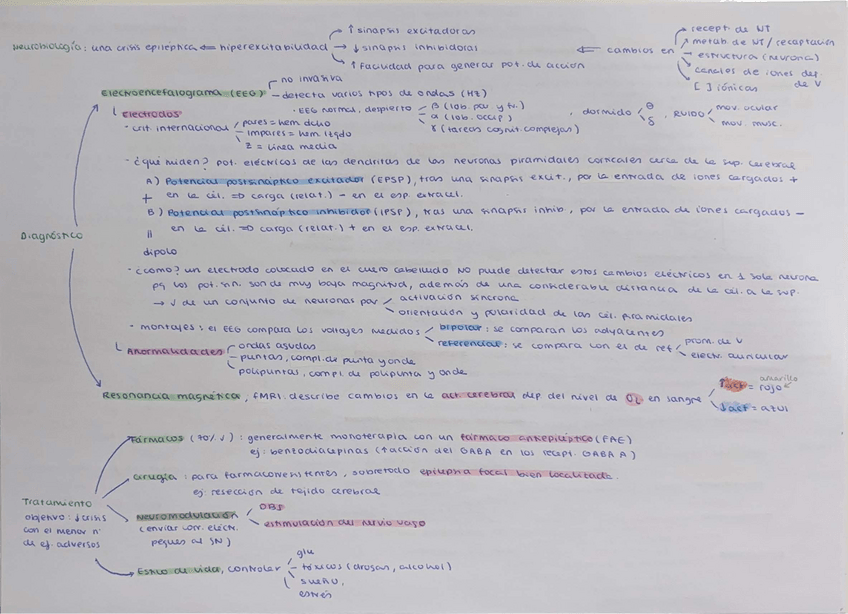 ↑ sinapsis excitadoras
Neurobiología: una crisis epiléptica ⇐ hiperexcitabilidad → ↓ sinapsis inhibidoras ⇐ cambios en
↑ facilidad para generar pot. de acción
recept. de NT
metab. de NT / recaptación
estructura (neurona)
canales de iones dep. de V
[ ] iónicas
Diagnóstico
Electroencefalograma (EEG)
no invasiva
detecta varios tipos de ondas (Hz)
· EEG normal, despierto
β (lob. par y fr.)
α (lob. occip)
γ (tareas cognit. complejas)
· dormido
θ
δ
· RUIDO
mov. ocular
mov. musc.
Electrodos
· crit. internacional
pares = hem dcho
impares = hem izqdo
z = línea media
· ¿qué miden? pot. eléctricos de las dendritas de las neuronas piramidales corticales cerca de la sup. cerebral
A) Potencial postsináptico excitador (EPSP), tras una sinapsis excit., por la entrada de iones cargados +
+ en la cél. ⇒ carga (relat.) - en el esp. extracel.
B) Potencial postsináptico inhibidor (IPSP), tras una sinapsis inhib., por la entrada de iones cargados -
|| en la cél. ⇒ carga (relat.) + en el esp. extracel.
dipolo
· ¿cómo? un electrodo colocado en el cuero cabelludo NO puede detectar estos cambios eléctricos en 1 sola neurona
pq los pot. nn. son de muy baja magnitud, además de una considerable distancia de la cél. a la sup.
→ ✓ de un conjunto de neuronas por
activación síncrona
orientación y polaridad de las cél. piramidales
· montajes: el EEG compara los voltajes medidos
bipolar: se comparan los adyacentes
referencial: se compara con el de ref
prom. de V
electr. auricular
Anormalidades
ondas agudas
puntas, compl. de punta y onda
polipuntas, compl. de polipunta y onda
Resonancia magnética, fMRI: describe cambios en la act. cerebral dep del nivel de O₂ en sangre
↑act = rojo
amarillo
↓act = azul
Tratamiento
objetivo: ↓ crisis
con el menor nº
de ef. adversos
Fármacos (70% ✓): generalmente monoterapia con un fármaco antiepiléptico (FAE)
ej: benzodiacepinas (↑ acción del GABA en los recept. GABA A)
Cirugía: para farmacorresistentes, sobretodo epilepsia focal bien localizada.
ej: resección de tejido cerebral
Neuromodulación
(enviar corr. eléctr.
peques al SN)
DBS
estimulación del nervio vago
Estilo de vida, controlar
glu
tóxicos (drogas, alcohol)
sueño,
estrés